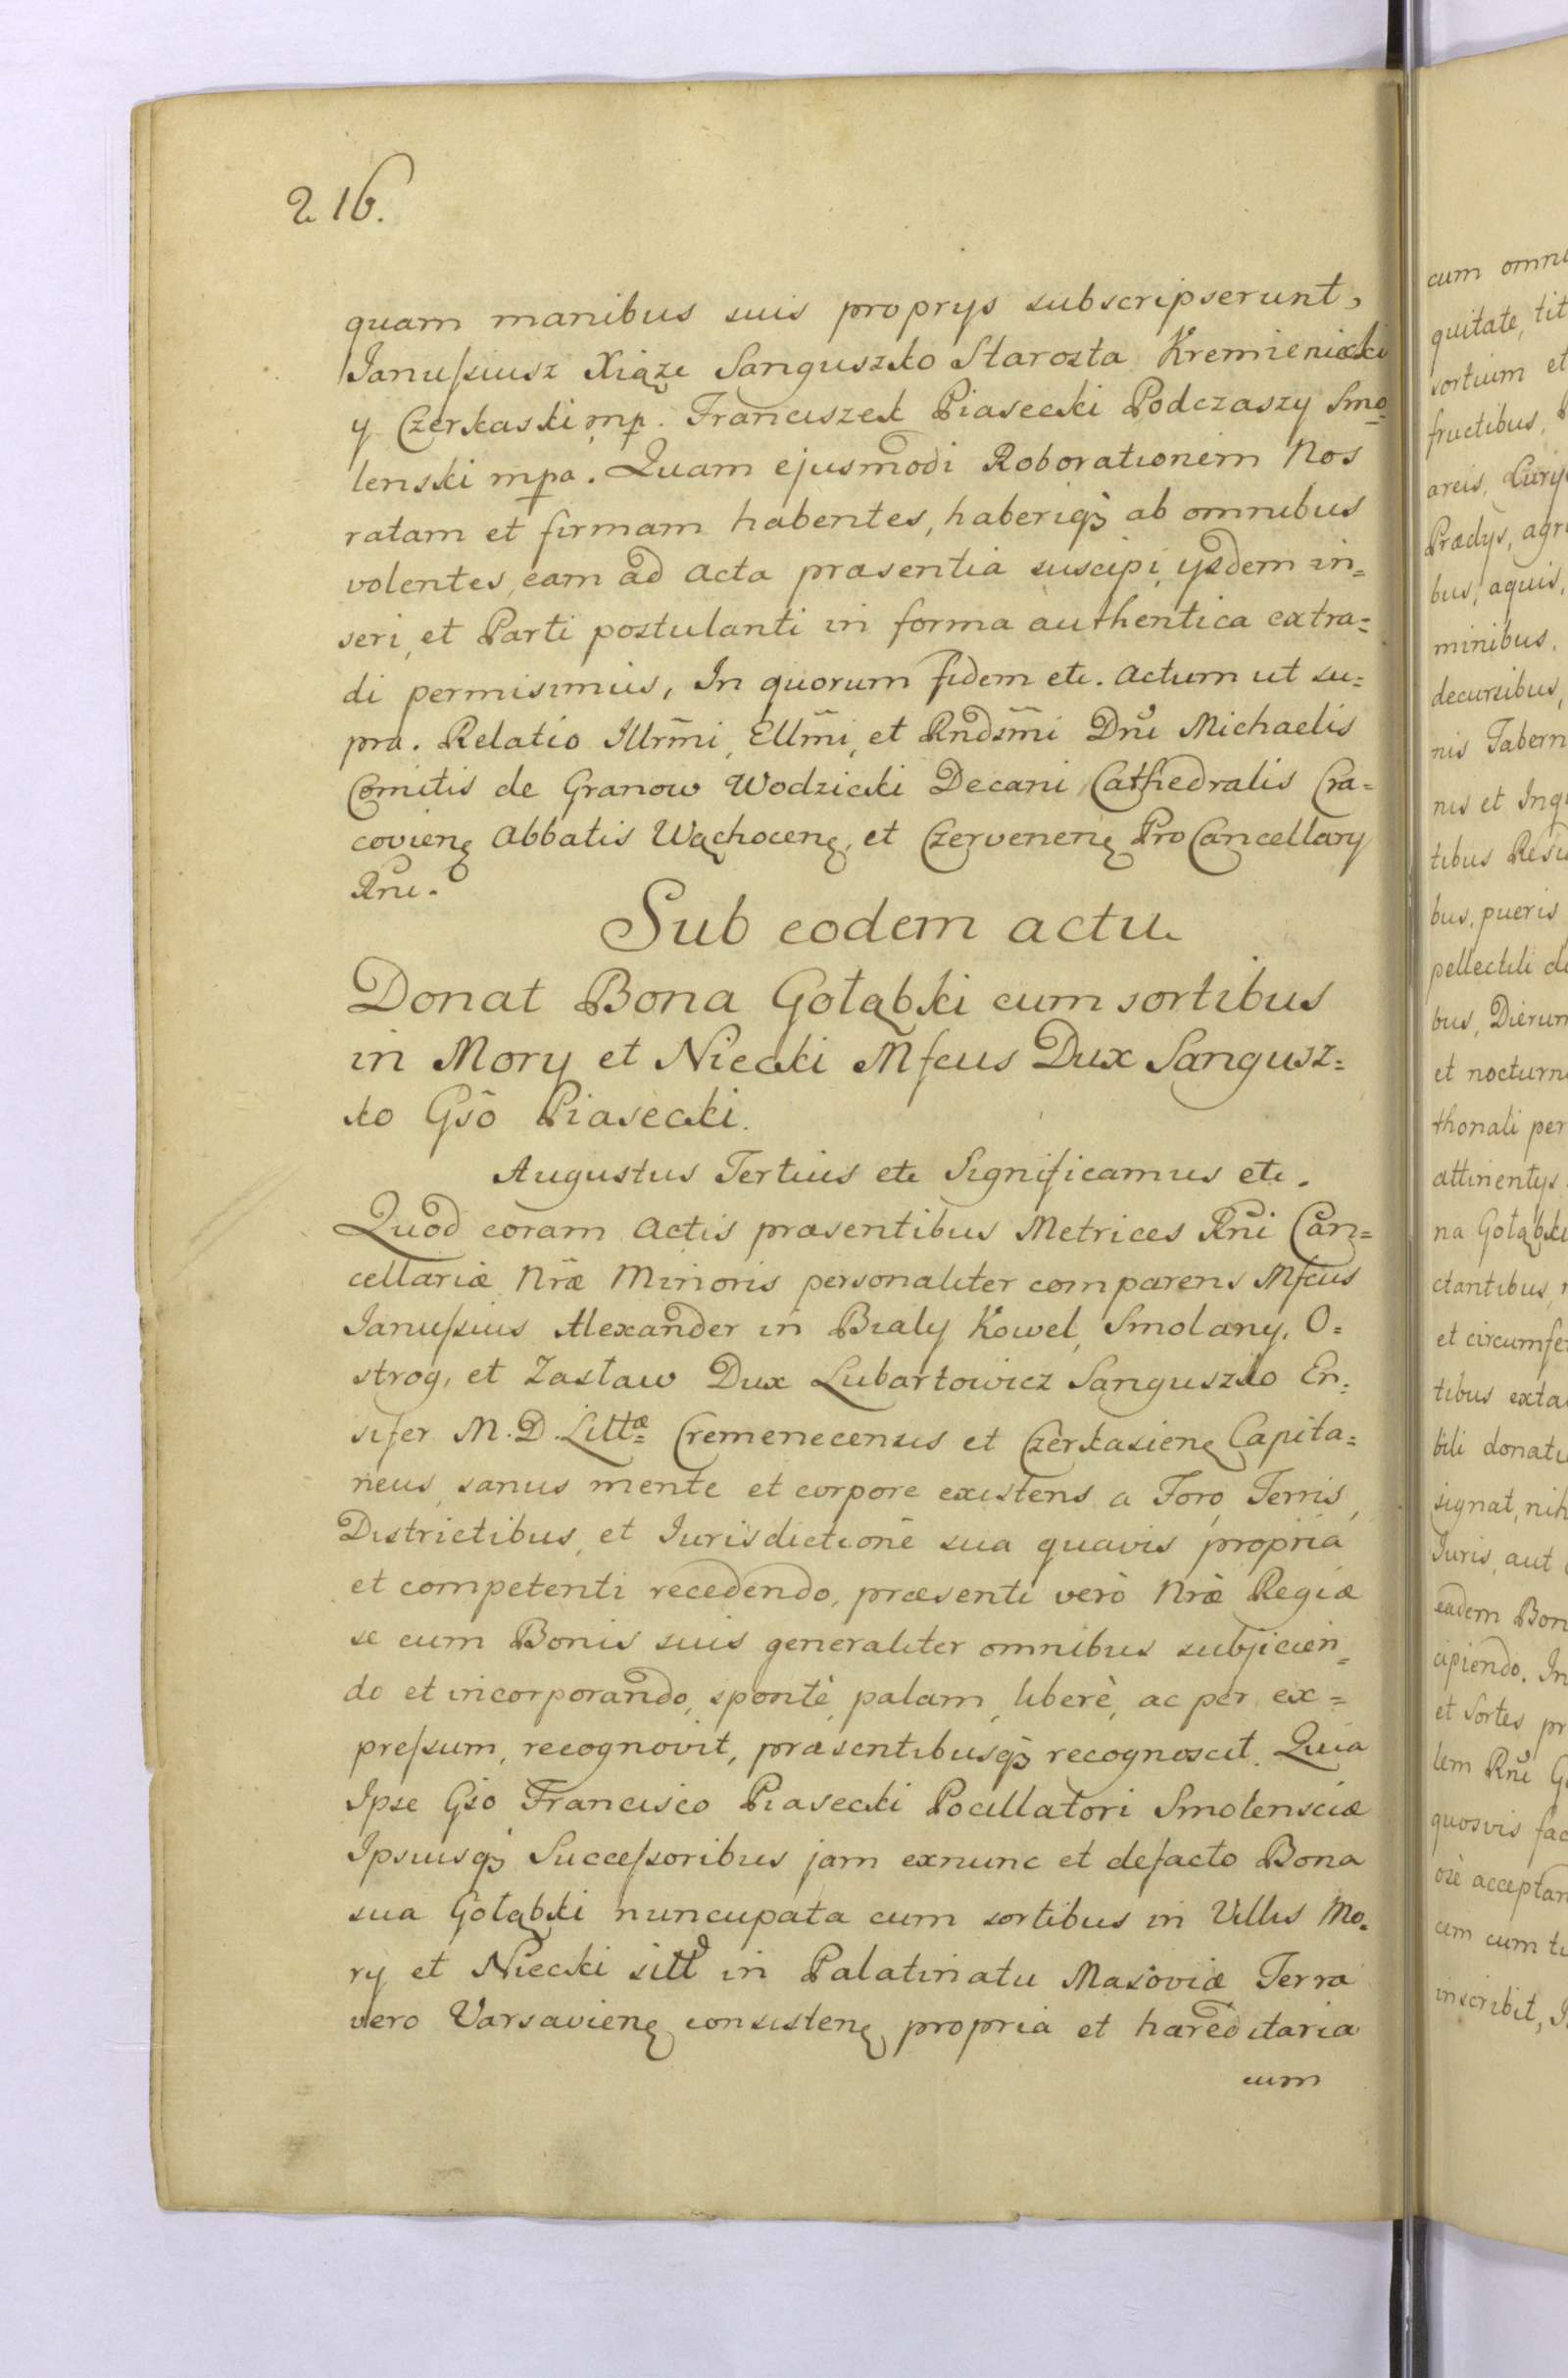 216.
quam manibus suis proprys subscripserunt,
Januſsiusz Xiąze Sanguszko Starosta Kremieniecki
y Czerkaski mp. Franciszek Piasecki Podczaszy Smo-
lenski mpa. Quam ejusmodi Roborationem Nos
ratam et firmam habentes, haberiqȝ ab omnibus
volentes, eam ad acta præsentia suscipi, ysdem in=
seri, et Parti postulanti in forma authentica extra=
di permisimus, In quorum fidem etc. Actum ut su=
pra. Relatio Illrm̃i, Ellm̃i, et Rndsm̃i Dn̄i Michaelis
Comitis de Granow Wodzicki Decani Cathedralis Cra=
covienȩ Abbatis Wąchocenȩ, et Czervenenȩ ProCancellary
Rni.
Sub eodem actu
Donat Bona Gołąbki cum sortibus
in Mory et Niecki Mfcus Dux Sangusz=
ko Gsō Piasecki.
Augustus Tertius etc Significamus etc.
Quod coram Actis præsentibus Metrices Rn̄i Can=
cellariæ Nr̄æ Minoris personaliter comparens Mfcus
Januſsius Alexander in Bialy Kowel, Smolany, O=
strog, et Zasław Dux Lubartowicz Sanguszko En=
sifer M.D. Littæ= Cremenecensis et Czerkasienȩ Capita=
neus, sanus mente et corpore existens a Foro, Terris,
Districtibus, et Iurisdictione sua quavis propria
et competenti recedendo, præsenti verò Nr̄æ Regiæ
se cum Bonis suis generaliter omnibus subjicien=
do et incorporando, spontè, palam, liberè, ac per ex=
preſsum, recognovit, præsentibusqȝ recognoscit. Quia
Ipse Gso Francisco Piasecki Pocillatori Smolensciæ
Ipsiusqȝ Succeſsoribus jam exnunc et defacto Bona
sua Gołąbki nuncupata cum sortibus in Villis Mo=
ry et Niecki sitt in Palatinatu Masoviæ Terra
vero Varsavienȩ consistenȩ propria et hæreditaria
cum
cum omni
quitate, tit
sortium et
fructibus,
areis, Curij
Prædys, agr
bus, aquis,
minibus,
decursibus,
nis Tabern
nis et Inqu
tibus Resi
bus, pueris
pellectili do
bus, Dierum
et nocturn
thonali per
attinentys
na Gołąbki
ctantibus,
et circumfe
tibus exta
bili donati
signat, nih
Iuris, aut
eadem Bon
cipiendo. In
et Sortes pr
lem Rn̄i G
quosvis fac
orè acceptan
cum ti
inscribit,